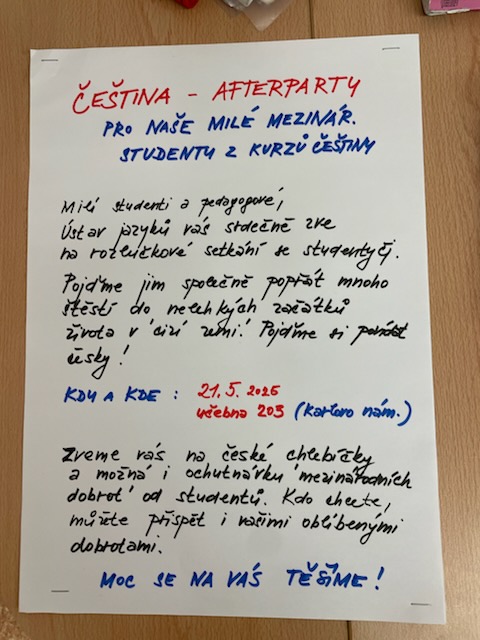 ČEŠTINA - AFTERPARTY
PRO NAŠE MILÉ MEZINÁR.
STUDENTY Z KURZŮ ČEŠTINY
Milí studenti a pedagogové,
Ústav jazyků vás srdečně zve
na rozlučkové setkání se studenty čj.
Pojďme jim společně popřát mnoho
štěstí do nelehkých začátků
života v 'cizí zemi'. Pojďme si povídat
česky!
KDY A KDE : 21. 5. 2025
učebna 203 (Karlovo nám.)
Zveme vás na české chlebíčky
a možná i ochutnávku mezinárodních
dobrot od studentů. Kdo chcete,
můžete přispět i vašimi oblíbenými
dobrotami.
MOC SE NA VÁS TĚŠÍME!